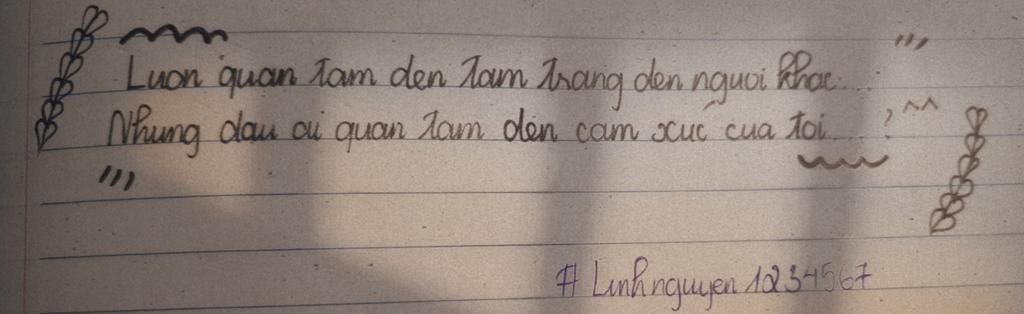 Luon quan tam den tam trang den nguoi khac...
Nhung dau ai quan tam den cam xuc cua toi...? ^^
# Linhnguyen 1234567